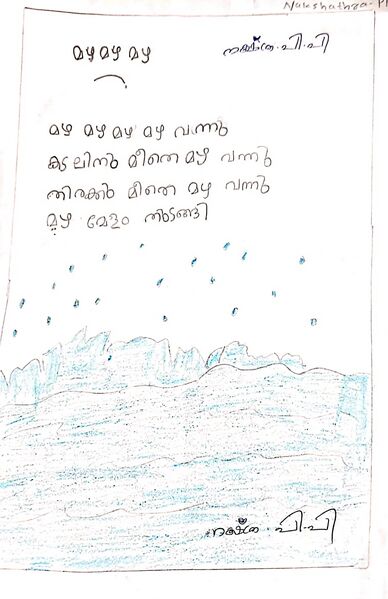 Nakshathra. P
മഴ മഴ മഴ
നക്ഷത്ര. പി. പി
മഴ മഴ മഴ മഴ വന്നു
കടലിനു മീതെ മഴ വന്നു
തിരക്കു മീതെ മഴ വന്നു
മഴ മേളം തുടങ്ങി
നക്ഷത്ര. പി. പി